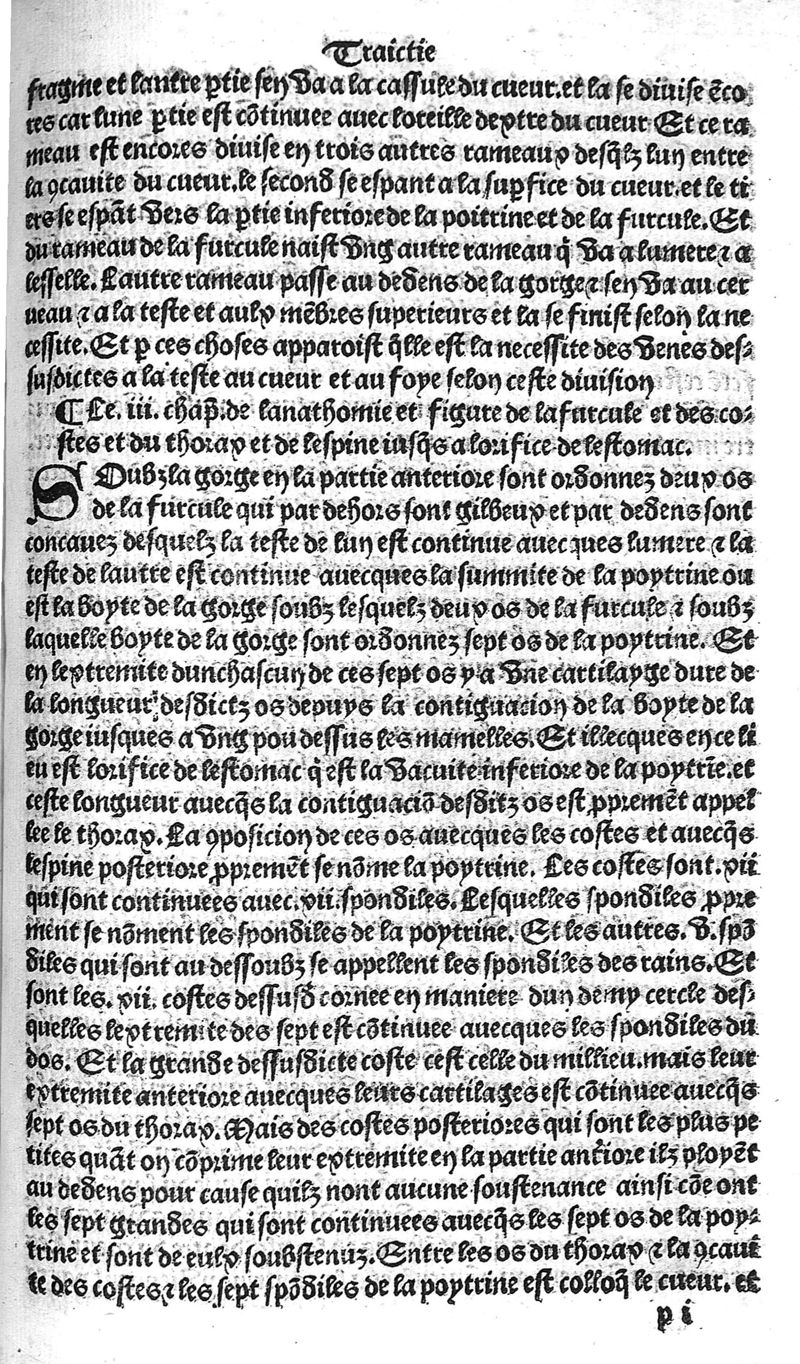 Traictie
fragme et lautre ptie sen va a la cassule du cueur. et la se divise eco
res car lune ptie est cōtinuee avec loreille dextre du cueur Et ce ra
meau est encores divise en trois autres rameaux desq̄lz lun entre
la ꝯcauite du cueur. le second se espant a la supfice du cueur. et le ti
ers se espāt vers la ptie inferiore de la poitrine et de la furcule. Et
du rameau de la furcule naist vng autre rameau q̄ va a lumere ⁊ a
lesselle. Lautre rameau passe au dedens de la gorge ⁊ sen va au cer
ueau ⁊ a la teste et aulx mēbres superieurs et la se finist selon la ne
cessite. Et p ces choses apparoist q̄lle est la necessite des venes des⸗
susdictes a la teste au cueur et au foye selon ceste division
¶ Le. iii. chap̄. de lanathomie et figure de la furcule et des co⸗
stes et du thorax et de lespine iusq̄s a lorifice de lestomac.
SOubz la gorge en la partie anteriore sont ordonnez deux os
de la furcule qui par dehors sont gilbeux et par dedens sont
concauez desquelz la teste de lun est continue avecques lumere ⁊ la
teste de lautre est continue avecques la summite de la poytrine ou
est la boyte de la gorge soubz lesquelz deux os de la furcule ⁊ soubz
laquelle boyte de la gorge sont ordonnez sept os de la poytrine. Et
en lextremite dunchascun de ces sept os y a vne cartilayge dure de
la longueur desdictz os depuys la contiguacion de la boyte de la
gorge iusques a vng pou dessus les mamelles. Et illecques en ce li
eu est lorifice de lestomac q̄ est la vacuite inferiore de la poytrīe. et
ceste longueur avecq̄s la contiguaciō desditz os est ꝓpremēt appel
lee le thorax. La ꝯposicion de ces os avecques les costes et avecq̄s
lespine posteriore ꝓpremēt se nōme la poytrine. Les costes sont. xii
qui sont continuees avec. xii. spondiles. Lesquelles spondiles ꝓpre
ment se nōment les spondiles de la poytrine. Et les autres. v. spō
diles qui sont au dessoubz se appellent les spondiles des rains. Et
sont les. xii. costes dessusd cornee en maniere dun demy cercle des⸗
quelles lextremite des sept est cōtinuee avecques les spondiles du
dos. Et la grande dessusdicte coste cest celle du millieu. mais leur
extremite anteriore avecques leurs cartilages est cōtinuee avecq̄s
sept os du thorax. Mais des costes posteriores qui sont les plus pe
tites quāt on cōprime leur extremite en la partie anťiore ilz ployēt
au dedens pour cause quilz nont aucune soustenance ainsi cōe ont
les sept grandes qui sont continuees avecq̄s les sept os de la poy⸗
trine et sont de eulx soubstenuz. Entre les os du thorax ⁊ la ꝯcaui
te des costes ⁊ les sept spōdiles de la poytrine est colloq̄ le cueur. et
p i